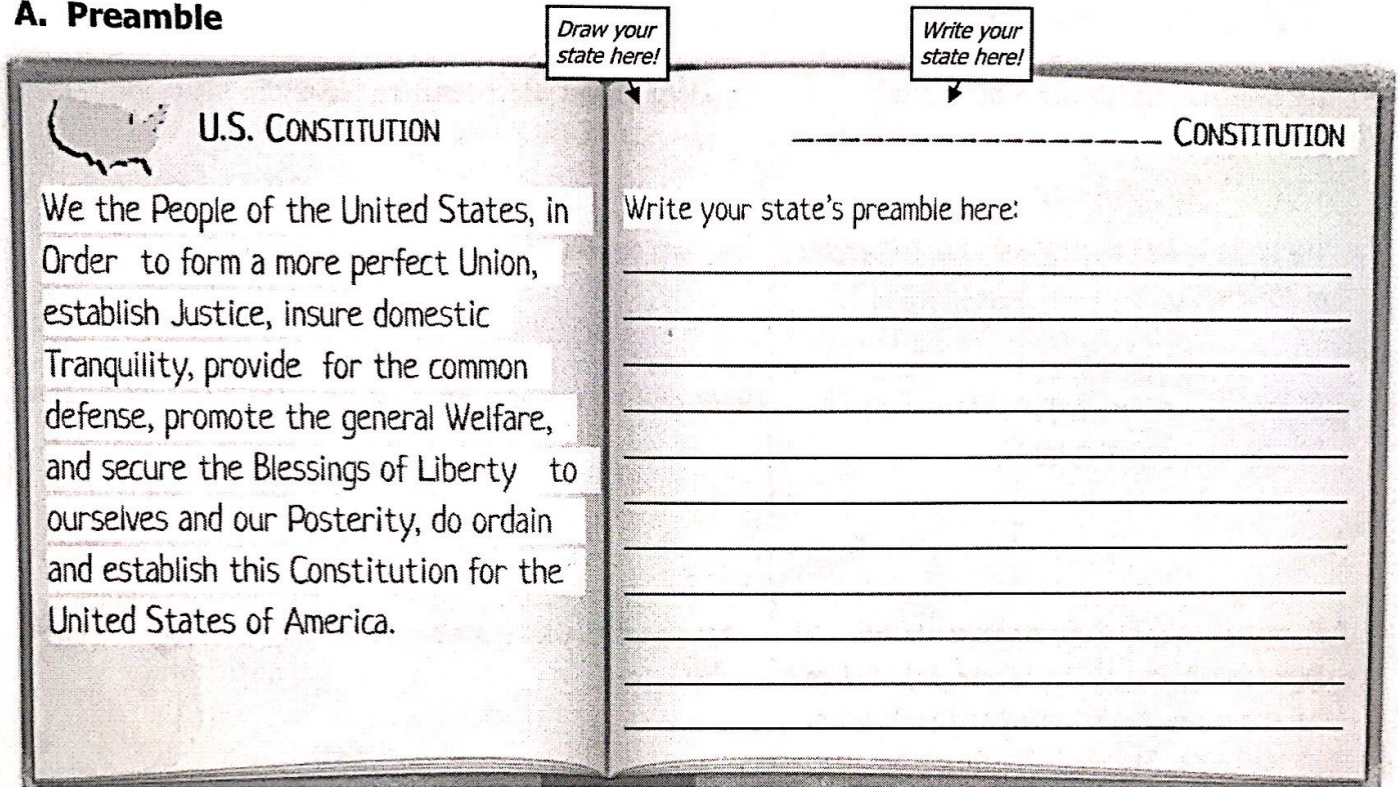 A. Preamble
Draw your
state here!
Write your
state here!
U.S. CONSTITUTION
We the People of the United States, in
Order to form a more perfect Union,
establish Justice, insure domestic
Tranquility, provide for the common
defense, promote the general Welfare,
and secure the Blessings of Liberty to
ourselves and our Posterity, do ordain
and establish this Constitution for the
United States of America.
_________________ CONSTITUTION
Write your state's preamble here: